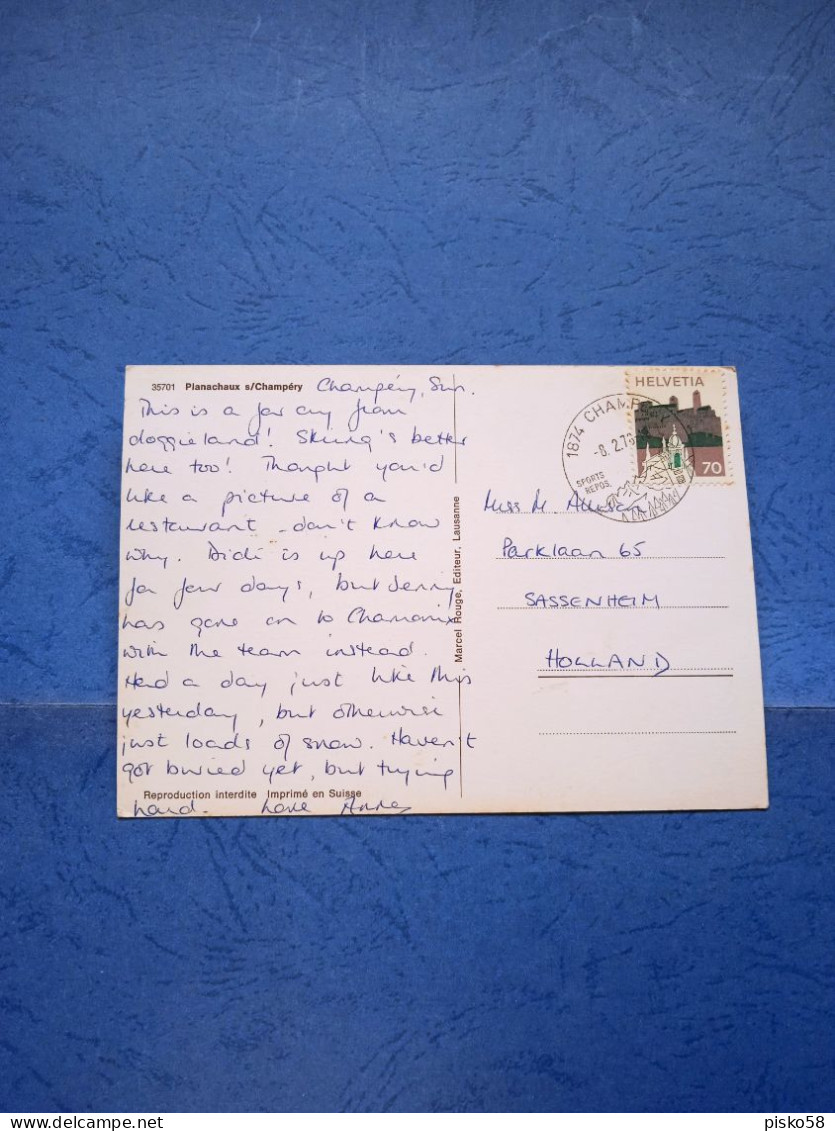 35701 Planachaux s/Champéry
Champéry, Sun.
This is a far cry from
doggieland! Skiing's better
here too! Thought you'd
like a picture of a
restaurant - don't know
why. Didi is up here
for few days, but Jenny
has gone on to Chamonix
with the team instead.
Had a day just like this
yesterday, but otherwise
just loads of snow. Haven't
got buried yet, but trying
hard. Love
Reproduction interdite Imprimé en Suisse
Marcel Rouge, Editeur, Lausanne
HELVETIA
70
1874 CHAMP
-8.2.75
SPORTS
REPOS
Miss M.
Parklaan 65
SASSENHEIM
HOLLAND
delcampe.net
pisko58